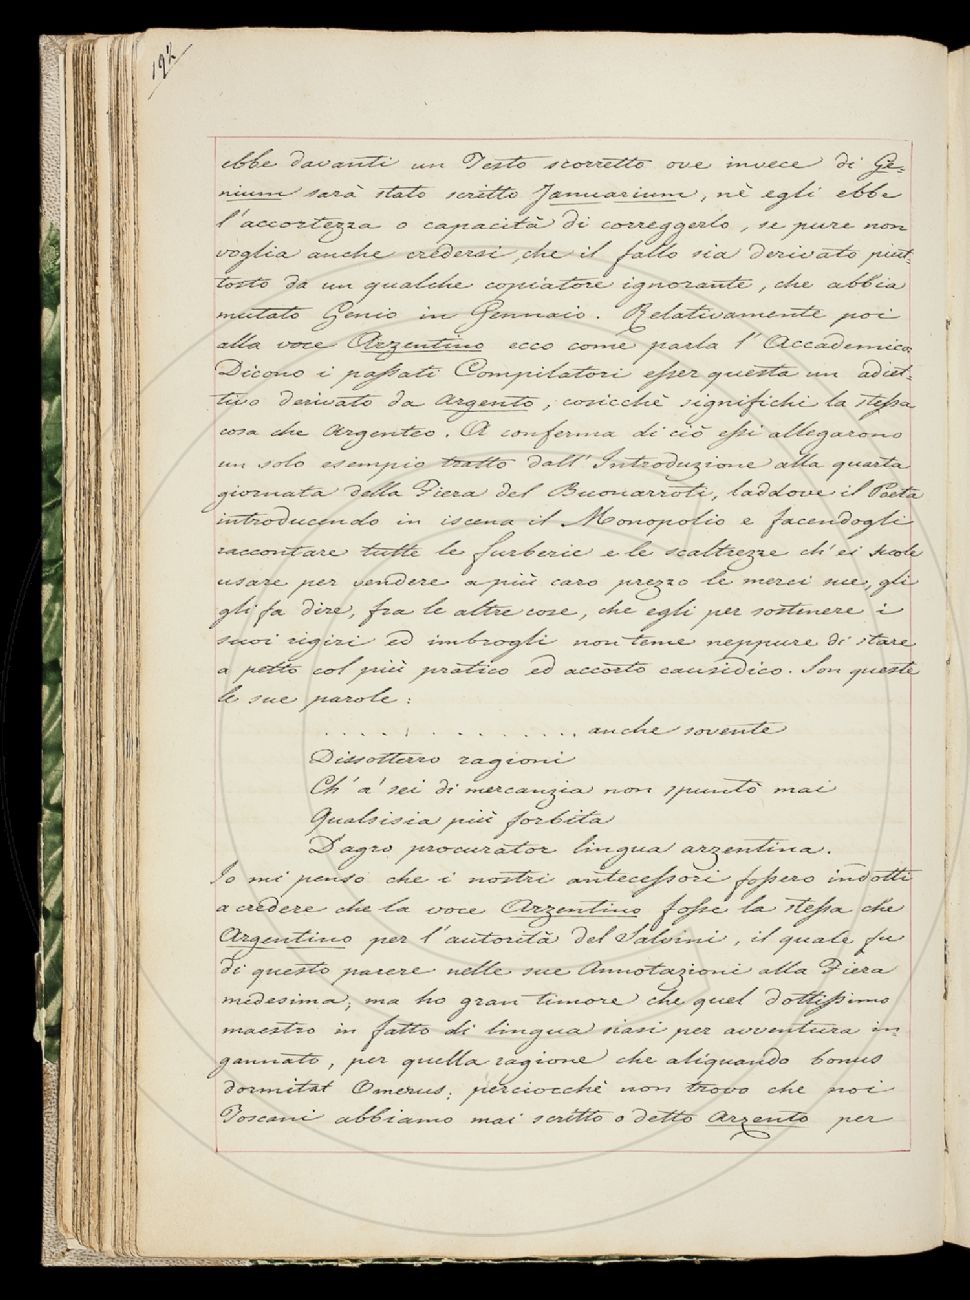 194
ebbe davanti un Testo scorretto ove invece di Ge-
nium sarà stato scritto Januarium, nè egli ebbe
l'accortezza o capacità di correggerlo, se pure non
voglia anche credersi che il fallo sia derivato piut-
tosto da un qualche copiatore ignorante, che abbia
mutato Genio in Gennaio. Relativamente poi
alla voce Arzentino ecco come parla l'Accademico.
Dicono i passati Compilatori esser questa un adiet-
tivo derivato da Argento, cosicchè significhi la stessa
cosa che Argenteo. A conferma di ciò essi allegarono
un solo esempio tratto dall'Introduzione alla quarta
giornata della Fiera del Buonarroti, laddove il Poeta
introducendo in iscena il Monopolio e facendogli
raccontare tutte le furberie e le scaltrezze ch'ei suole
usare per vendere a più caro prezzo le merci sue, gli
gli fa dire, fra le altre cose, che egli per sostenere i
suoi rigiri ed imbrogli non teme neppure di stare
a petto col più pratico ed accorto causidico. Son queste
le sue parole:
. . . . . . . . . . . . . . anche sovente
Dissotterro ragioni
Ch'a' sei di mercanzia non spuntò mai
Qualsisia più forbita
D'agro procurator lingua arzentina.
Io mi penso che i nostri antecessori fossero indotti
a credere che la voce Arzentino fosse la stessa che
Argentino per l'autorità del Salvini, il quale fu
di questo parere nelle sue Annotazioni alla Fiera
medesima; ma ho gran timore che quel dottissimo
maestro in fatto di lingua siasi per avventura in-
gannato, per quella ragione che aliquando bonus
dormitat Omerus; perciocchè non trovo che noi
Toscani abbiamo mai scritto o detto Arzento per